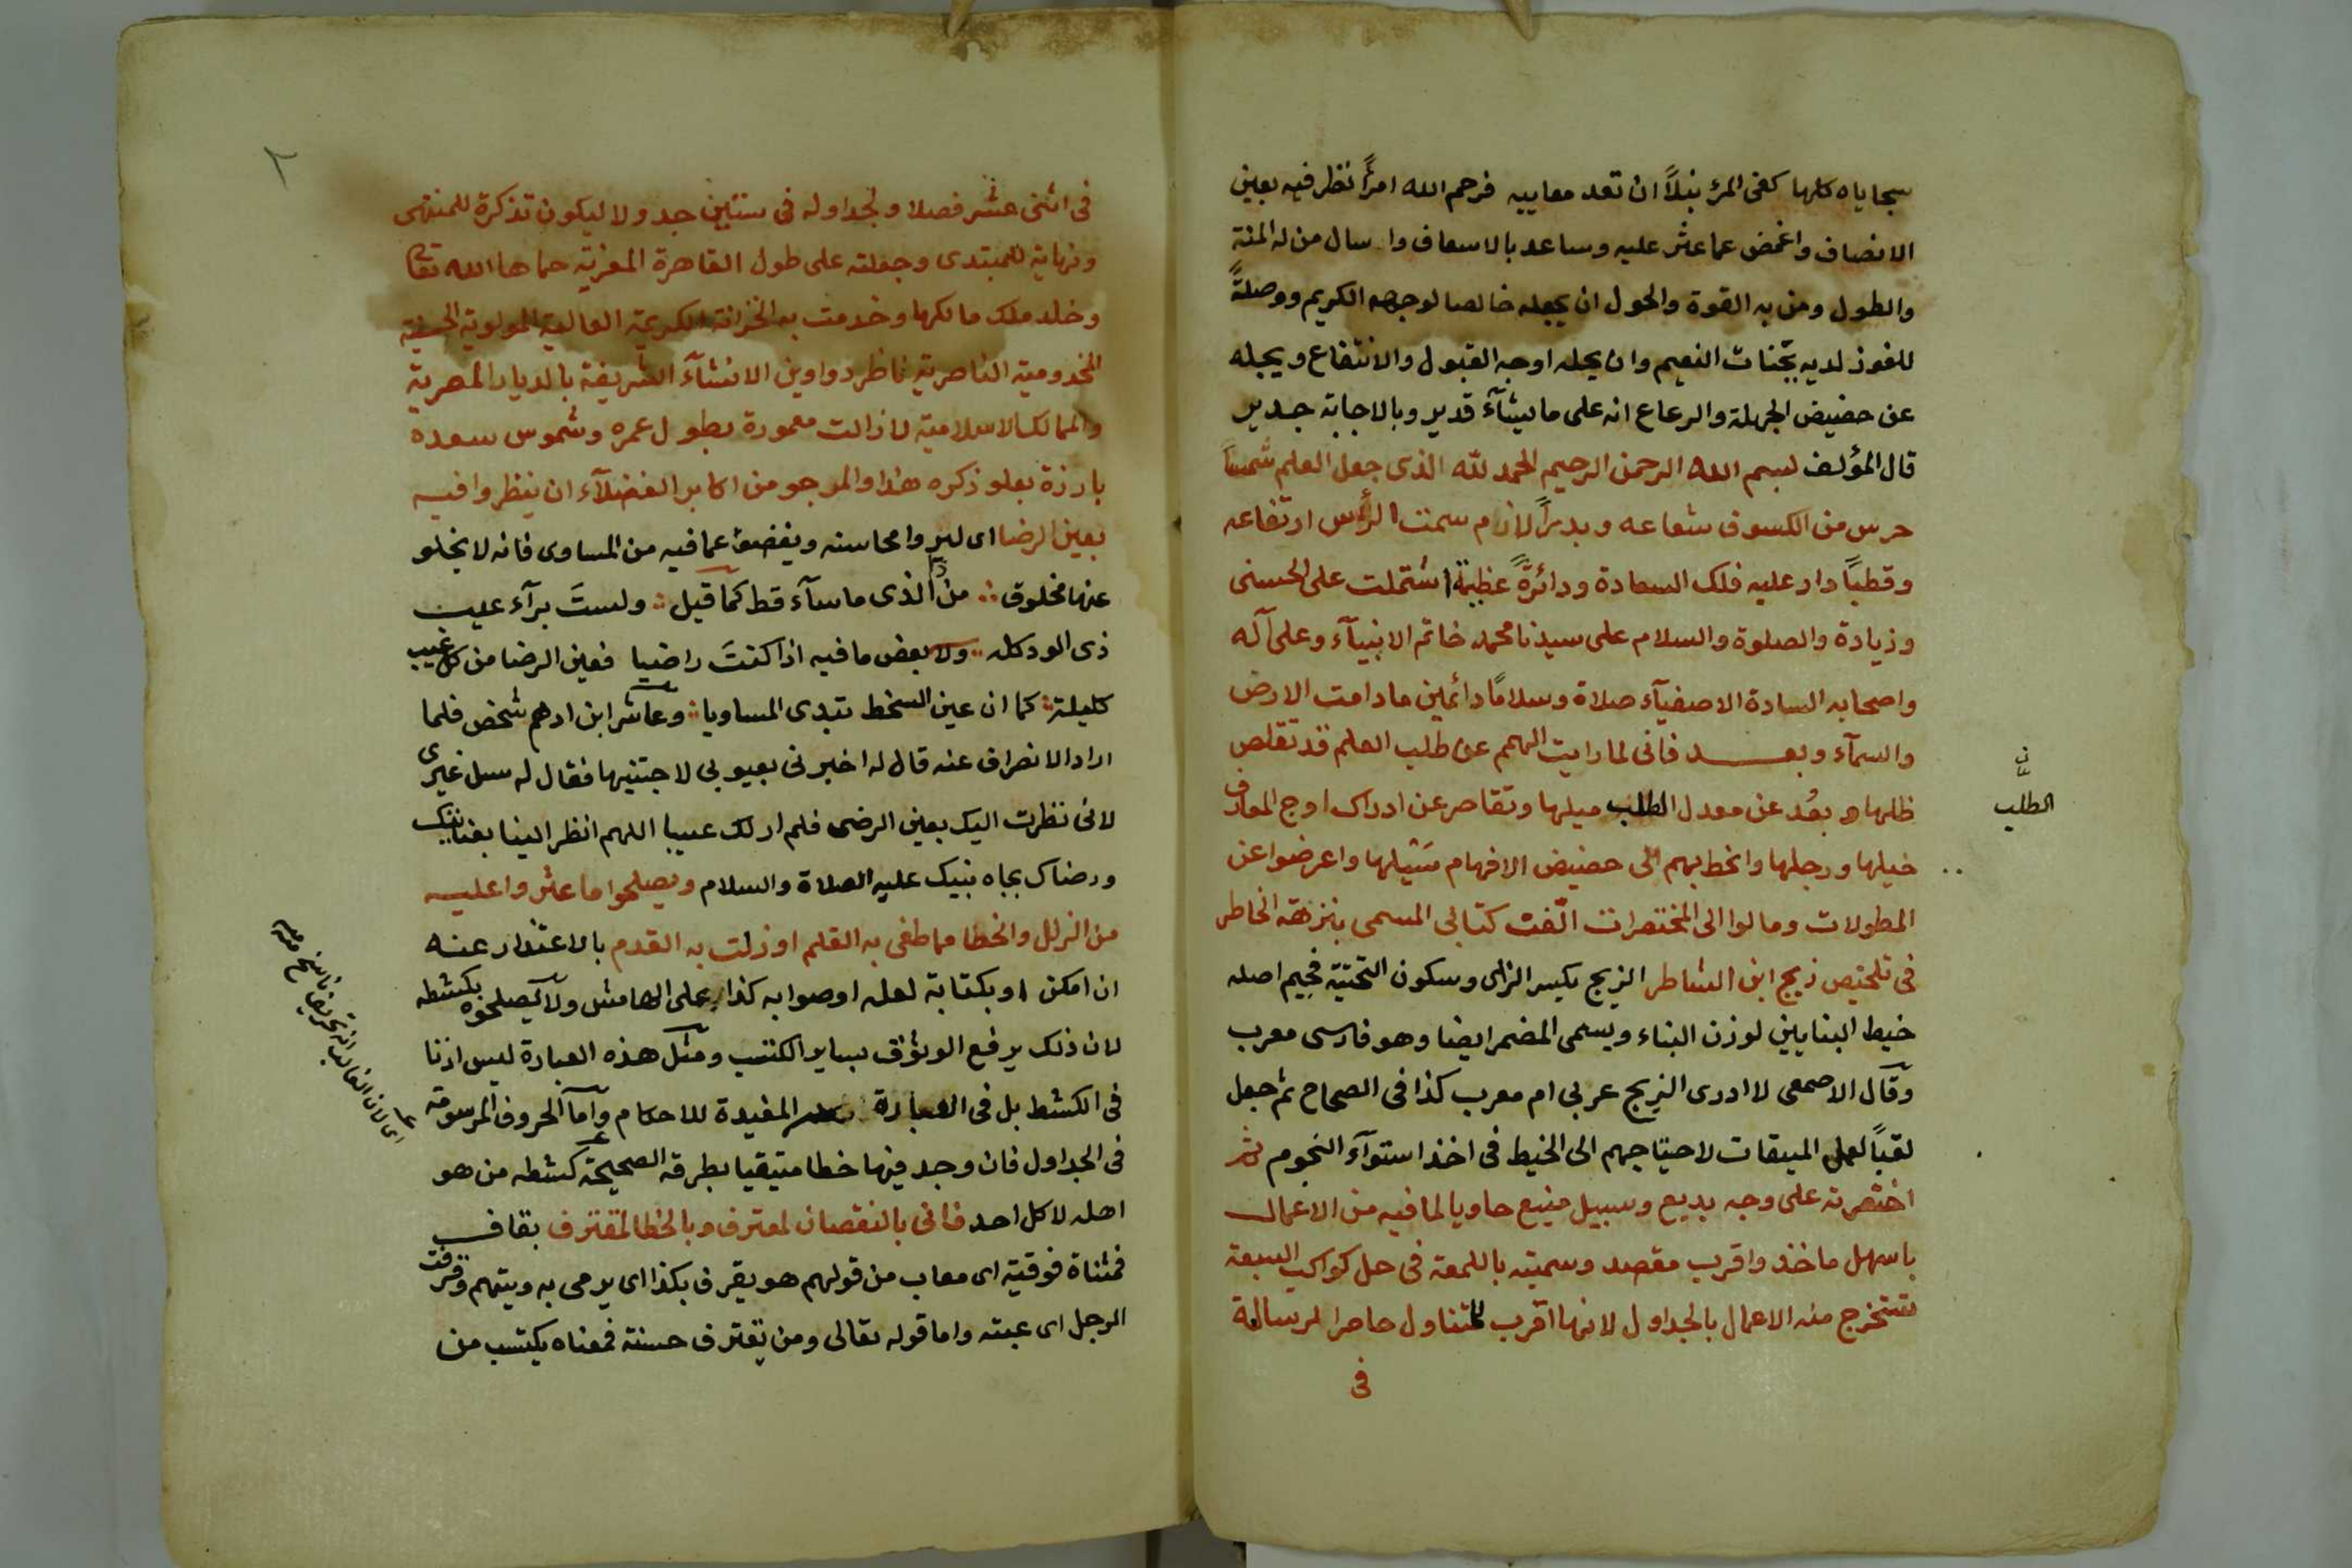 سجاياه كلها كفى المرء نبلاً ان تعد معاييه فرحم الله امرأً نظر فيه بعين
الانصاف واغمض عما عثر عليه وساعد بالاسعاف واسال من له المنة
والطول ومن به القوة والحول ان يجعله خالصا لوجهه الكريم ووصلةً
للفوز لديه بجنات النعيم وان يحله اوجه القبول والانتفاع ويجله
عن حضيض الجهلة والرعاع انه على ما يشآء قدير وبالاجابة جدير
قال المؤلف بسم الله الرحمن الرحيم الحمد لله الذى جعل العلم شمساً
حرس من الكسوف شعاعه وبدراً لازم سمت الرأس ارتفاعه
وقطباً دار عليه فلك السعادة ودائرةً عظيمةً اشتملت على الحسنى
وزيادة والصلوة والسلام على سيدنا محمد خاتم الانبيآء وعلى آله
واصحابه السادة الاصفيآء صلاة وسلامًا دائمين ما دامت الارض
والسمآء وبعد فانى لما رايت الهمم عن طلب العلم قد تقلص
ظلها وبعُد عن معدل الطلب ميلها وتقاصر عن ادراك اوج المعارف
الطلب
خيلها ورجلها وانحط بهم الى حضيض الافهام سَيْلها واعرضوا عن
المطولات ومالوا الى المختصرات الّفت كتابى المسمى بنزهة الخاطر
فى تلخيص زيج ابن الشاطر الزيج بكسر الزاى وسكون التحتيّة فجيم اصله
خيط البنايين لوزن البناء ويسمى المضمر ايضا وهو فارسى معرب
وقال الاصمعى لا ادرى الزيج عربى ام معرب كذا فى الصحاح ثم جعل
لقباً لعمل الميقات لاحتياجهم الى الخيط فى اخذ استوآء النجوم ثم
اختصرته على وجه بديع وسبيل منيع حاويا لما فيه من الاعمال
باسهل ماخذ واقرب مقصد وسميته باللمعة فى حل كواكب السبعة
تستخرج منه الاعمال بالجداول لانها اقرب للتناول حاصرا لرسالة
فى
٢
فى اثنى عشر فصلا ولجداوله فى ستين جدولا ليكون تذكرة للمنتهى
ونهاية للمبتدى وجعلته على طول القاهرة المعزية حماها الله تعا
وخلد ملك مالكها وخدمت به الخزانة الكريمة العالية المولوية
المخدومية الناصرية ناظر دواوين الانشآء الشريفة بالديار المصرية
والممالك الاسلامية لا زالت معمورة بطول عمره وشموس سعده
بارزة بعلو ذكره هذا والمرجو من اكابر الفضلآء ان ينظروا فيه
بعين الرضا اى ليروا محاسنه ويغضوا عما فيه من المساوى فانه لا يخلو
عنها مخلوق من ذا الذى ما سآء قط كما قيل ولستَ برآء عيب
ذى الود كله ولا بعض ما فيه اذا كنتَ راضيا فعين الرضا من كل عيب
كليلة كما ان عين السخط تبدى المساويا وعاشر ابن ادهم شخص فلما
اراد الانصراف عنه قال له اخبرنى بعيوبى لاجتنبها فقال له سل غيرى
لانى نظرت اليك بعين الرضى فلم ار لك عيبا اللهم انظر الينا بعنايتك
ورضاك بجاه نبيك عليه الصلاة والسلام ويصلحوا ما عثروا عليه
من الزلل والخطا مما طغى به القلم او زلت به القدم بالاعتذار عنه
ان امكن او بكتابة لعله او صوابه كذا على الهامش ولا يصلحوه بكشطه
لان ذلك يرفع الوثوق بساير الكتب ومثل هذه العبارة ليس اذنا
فى الكشط بل فى العبارة المفيدة للاحكام وآما الحروف المرسومة
فى الجداول فان وجد فيها خطا متيقيا بطرقه الصحيحة كشطه من هو
اهله لا كل احد فانى بالنقصان لمعترف وبالخطا لمقترف بقاف
فمثناة فوقية اى معاب من قولهم هو يقرف بكذا اى يرمى به ويتهم وقرفت
الرجل اى عبته واما قوله تعالى ومن يقترف حسنة فمعناه يكتسب من
اى لان الغالب انه تحريف ناسخ